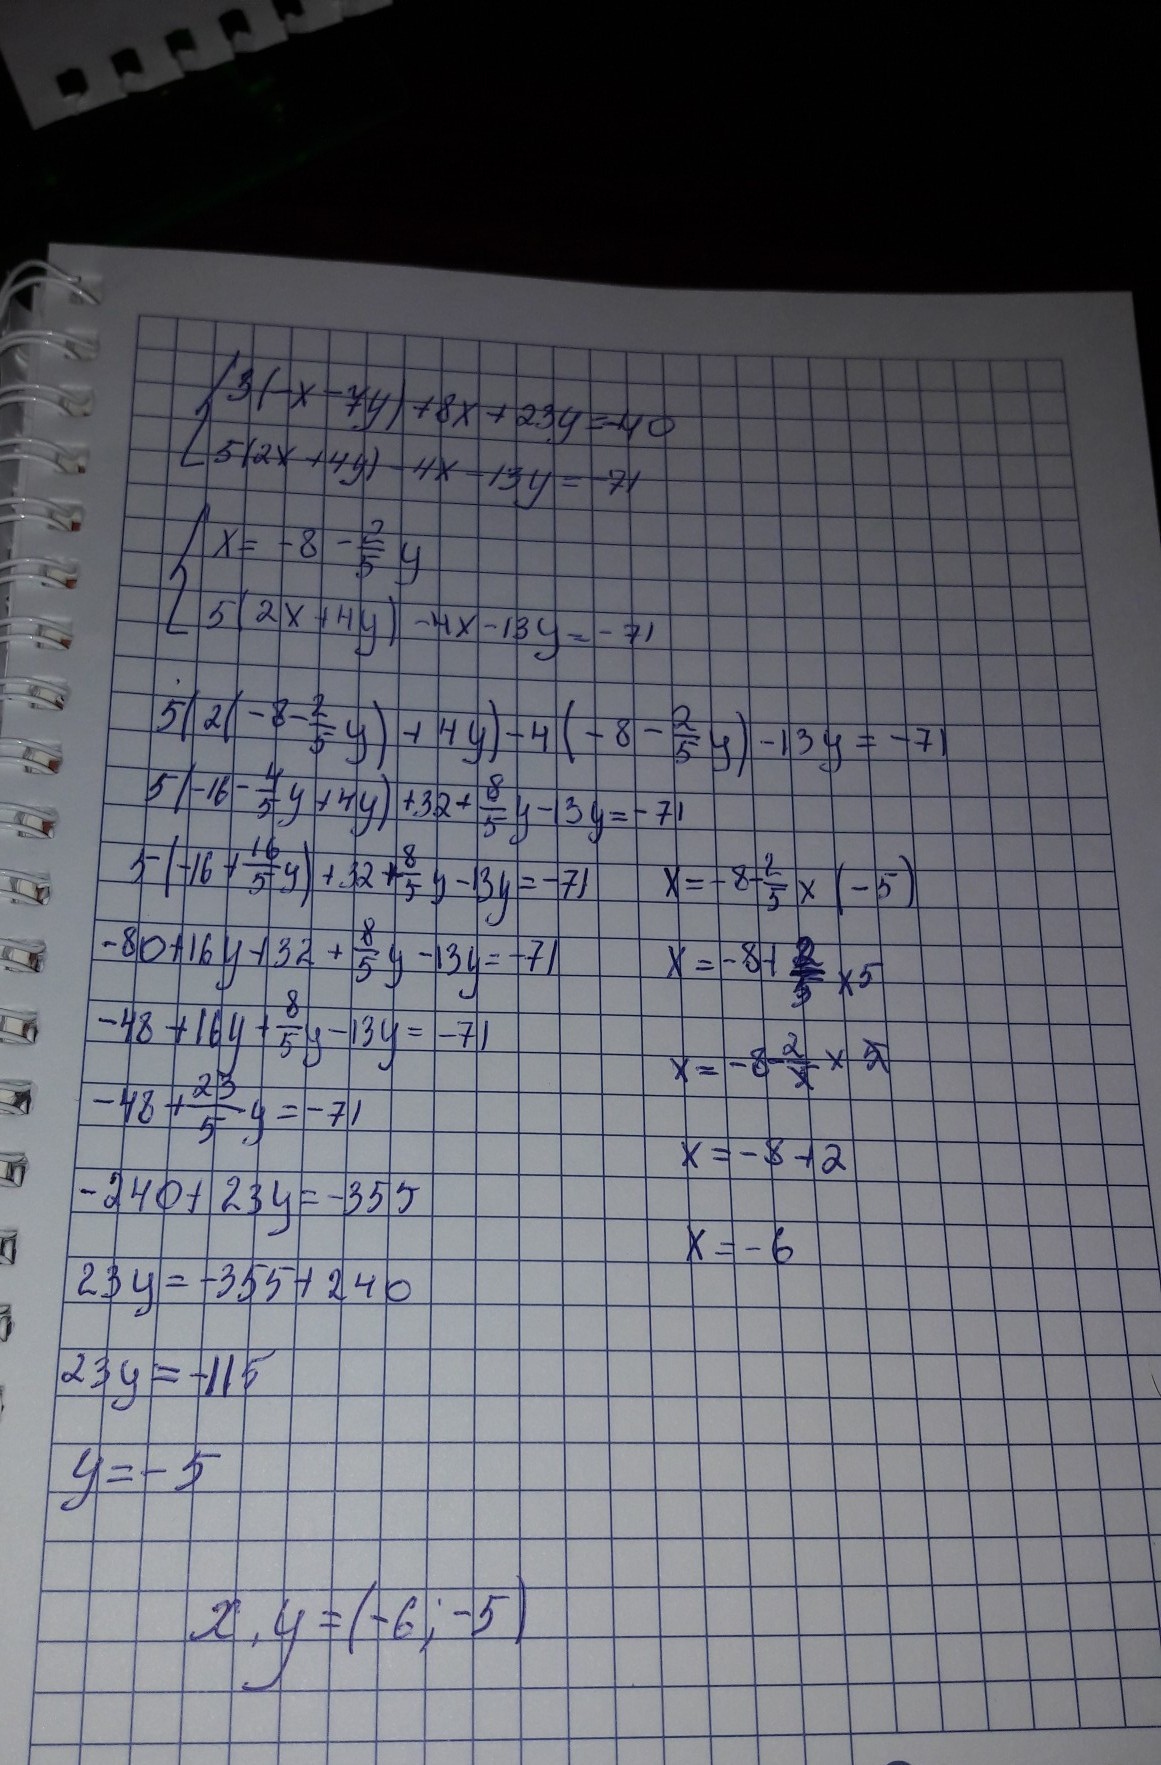 {3(-x-7y)+8x+23y=-40
5(2x+4y)-4x-13y=-71
{x=-8-2/5 y
5(2x+4y)-4x-13y=-71
5(2(-8-2/5 y)+4y)-4(-8-2/5 y)-13y=-71
5(-16-4/5 y+4y)+32+8/5 y-13y=-71
5(-16+16/5 y)+32+8/5 y-13y=-71
-80+16y+32+8/5 y-13y=-71
-48+16y+8/5 y-13y=-71
-48+23/5 y=-71
-240+23y=-355
23y=-355+240
23y=-115
y=-5
x=-8-2/5 x (-5)
x=-8+2/5 x5
x=-8-2/5 x 5
x=-8+2
x=-6
x,y=(-6;-5)